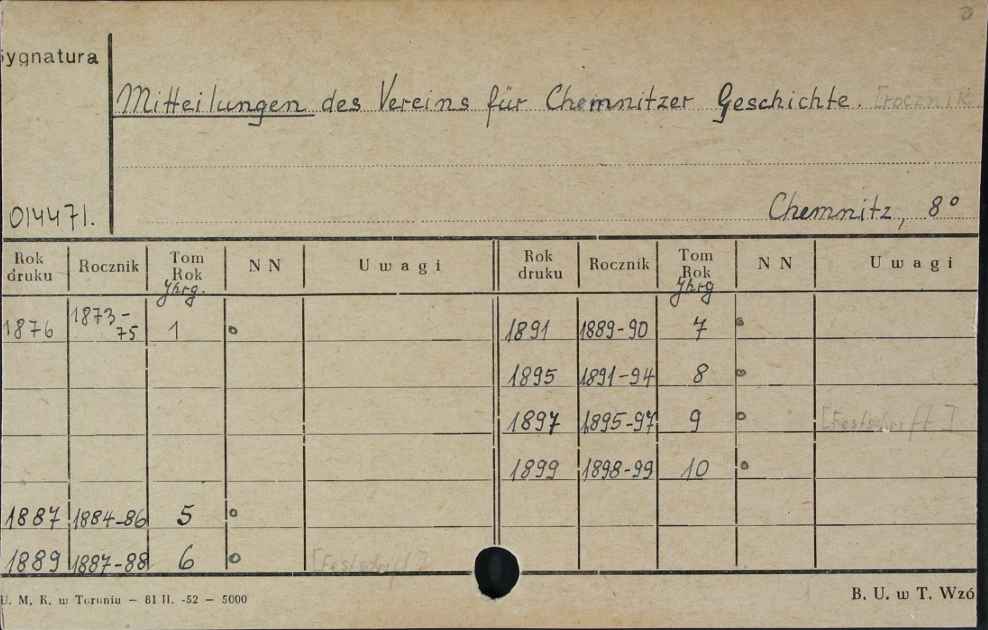 Sygnatura
Mitteilungen des Vereins für Chemnitzer Geschichte. [rocznik
014471.
Chemnitz, 8°
Rok druku Rocznik Tom Rok Jhrg. N N Uwagi Rok druku Rocznik Tom Rok Jhrg N N Uwagi
1876 1873-75 1 o 1891 1889-90 7 o
1895 1891-94 8 o
1897 1895-97 9 o [Festschrift]
1899 1898-99 10 o
1887 1884-86 5 o
1889 1887-88 6 o [Festschrift]
U. M. K. w Toruniu – 81 II. -52 – 5000
B. U. w T. Wzó